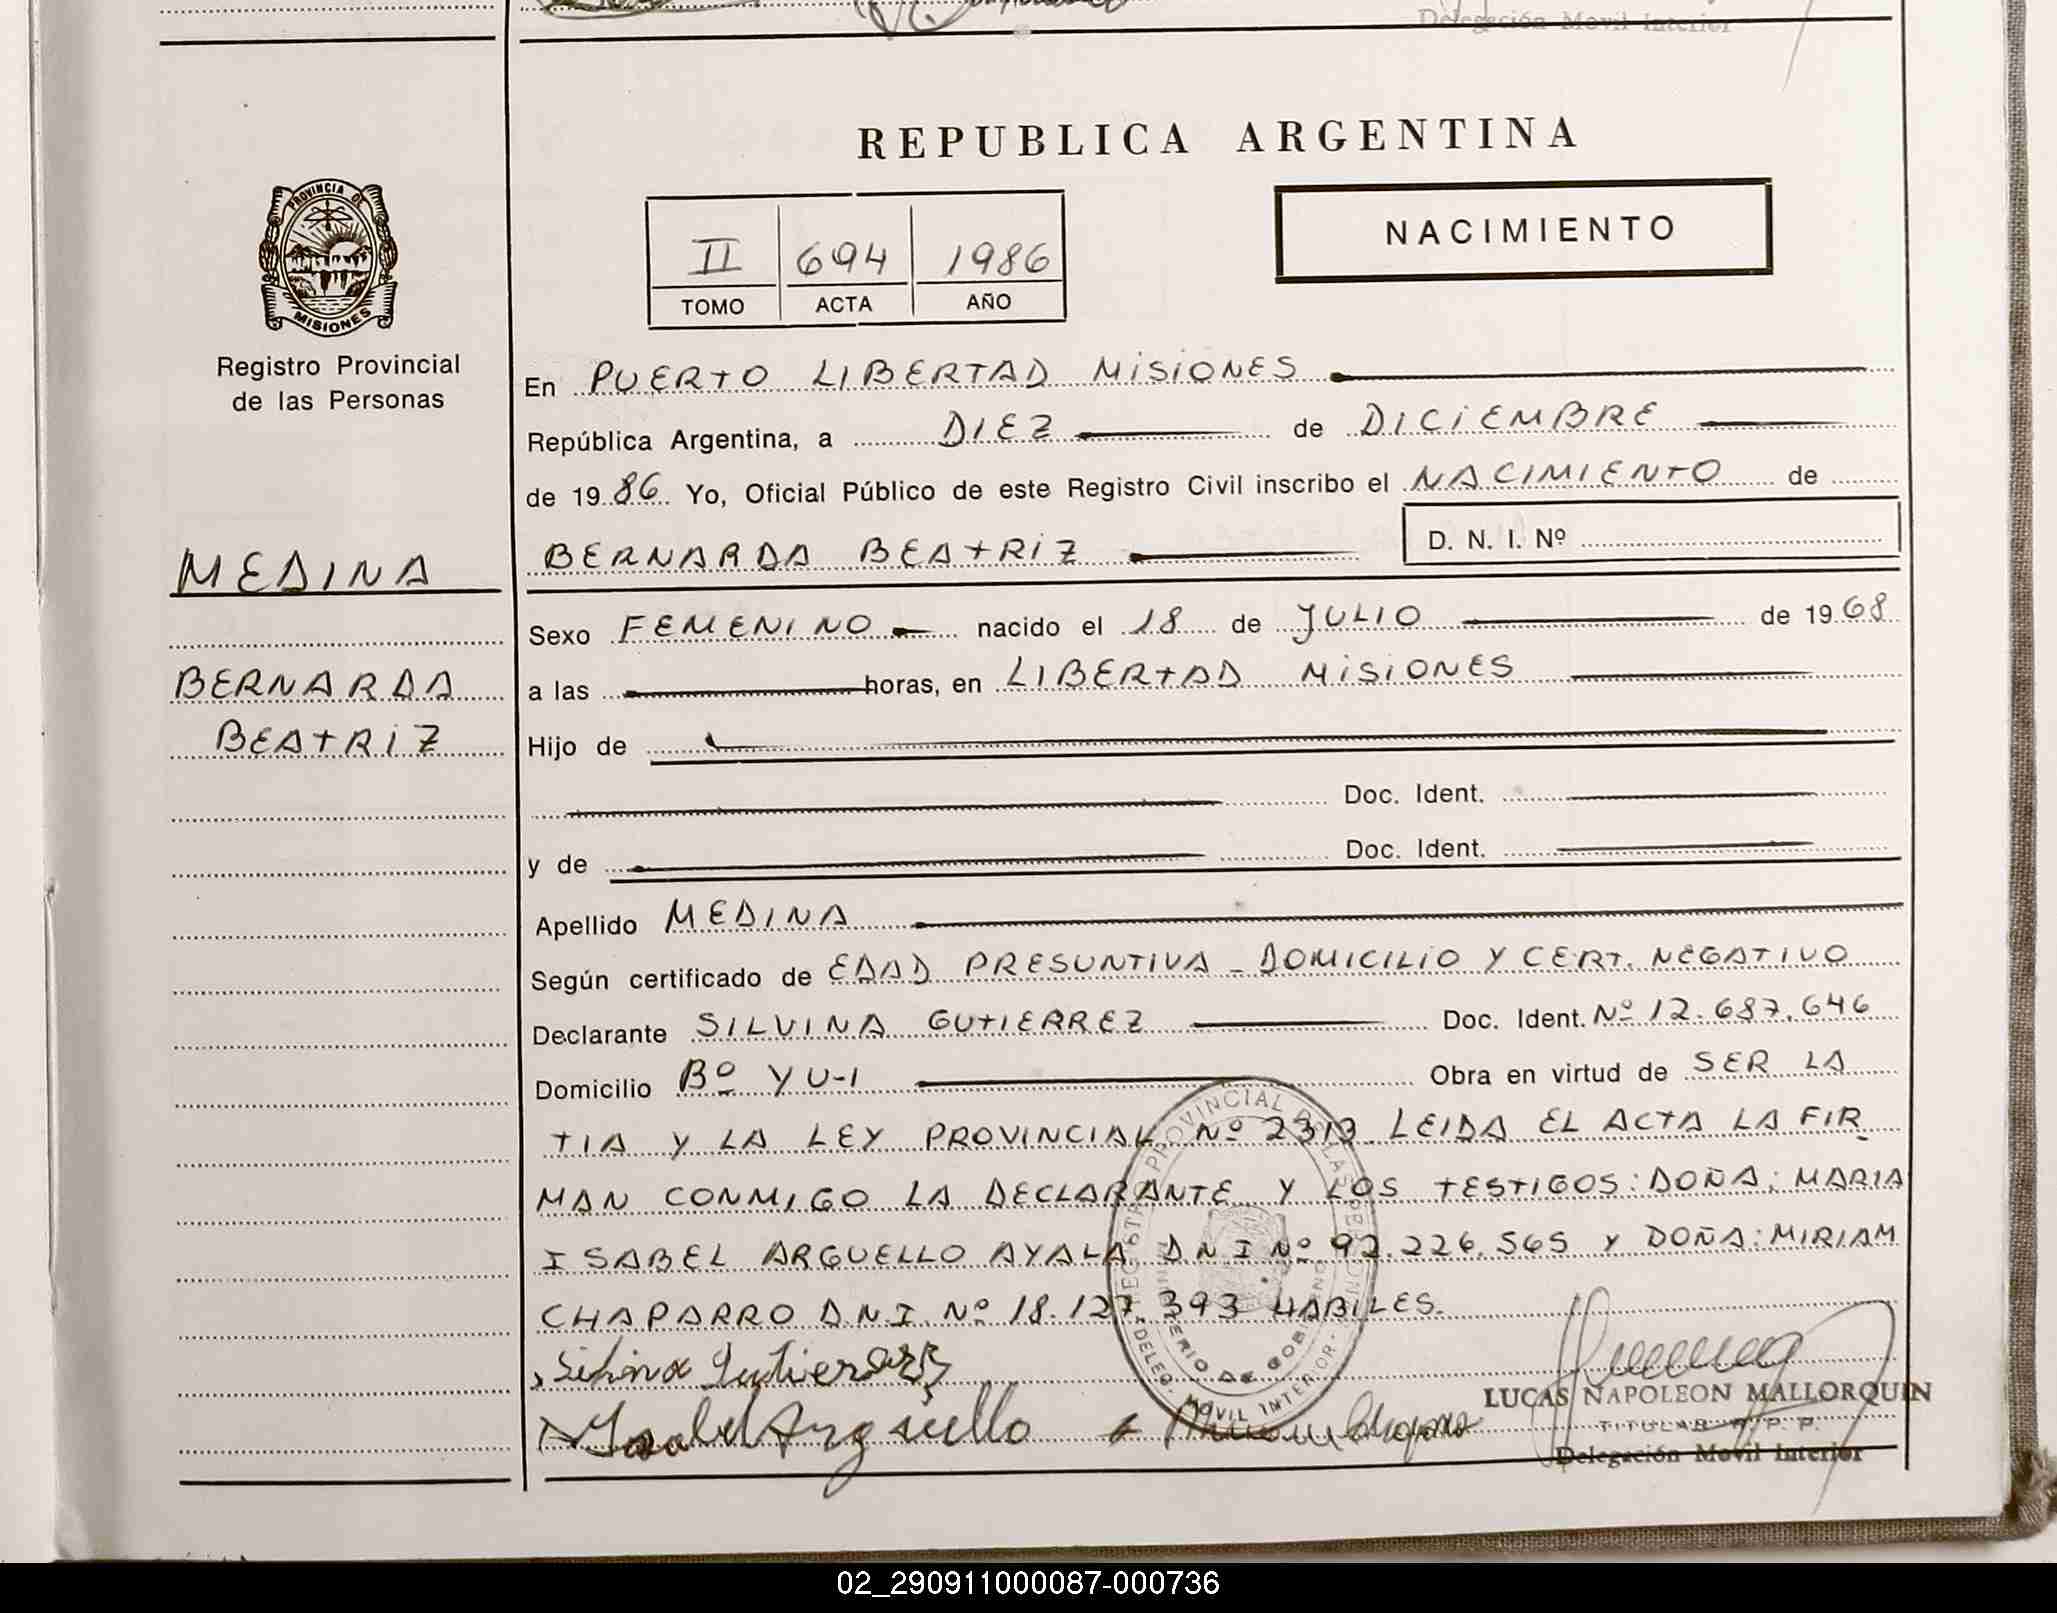 Delegación Movil Interior
REPUBLICA ARGENTINA
PROVINCIA DE
MISIONES
Registro Provincial
de las Personas
II 694 1986
TOMO ACTA AÑO
NACIMIENTO
En PUERTO LIBERTAD MISIONES
República Argentina, a DIEZ de DICIEMBRE
de 1986 Yo, Oficial Público de este Registro Civil inscribo el NACIMIENTO de
MEDINA
BERNARDA BEATRIZ
D. N. I. Nº
Sexo FEMENINO nacido el 18 de JULIO de 1968
BERNARDA
a las horas, en LIBERTAD MISIONES
BEATRIZ
Hijo de
Doc. Ident.
y de Doc. Ident.
Apellido MEDINA
Según certificado de EDAD PRESUNTIVA - DOMICILIO Y CERT. NEGATIVO
Declarante SILVINA GUTIERREZ Doc. Ident. Nº 12.687.646
Domicilio Bº YU-I Obra en virtud de SER LA
TIA Y LA LEY PROVINCIAL Nº 2313. LEIDA EL ACTA LA FIR_
MAN CONMIGO LA DECLARANTE Y LOS TESTIGOS: DOÑA: MARIA
ISABEL ARGUELLO AYALA DNI Nº 92.226.565 Y DOÑA: MIRIAM
CHAPARRO D.N.I. Nº 18.127.393 HABILES.
REGISTRO PROVINCIAL DE LAS PERSONAS
MINISTERIO DE GOBIERNO
DELEG. MOVIL INTERIOR
Silvina Gutierrez
Isabel Arguello
LUCAS NAPOLEON MALLORQUIN
TITULAR R. P. P.
Delegación Movil Interior
02_290911000087-000736